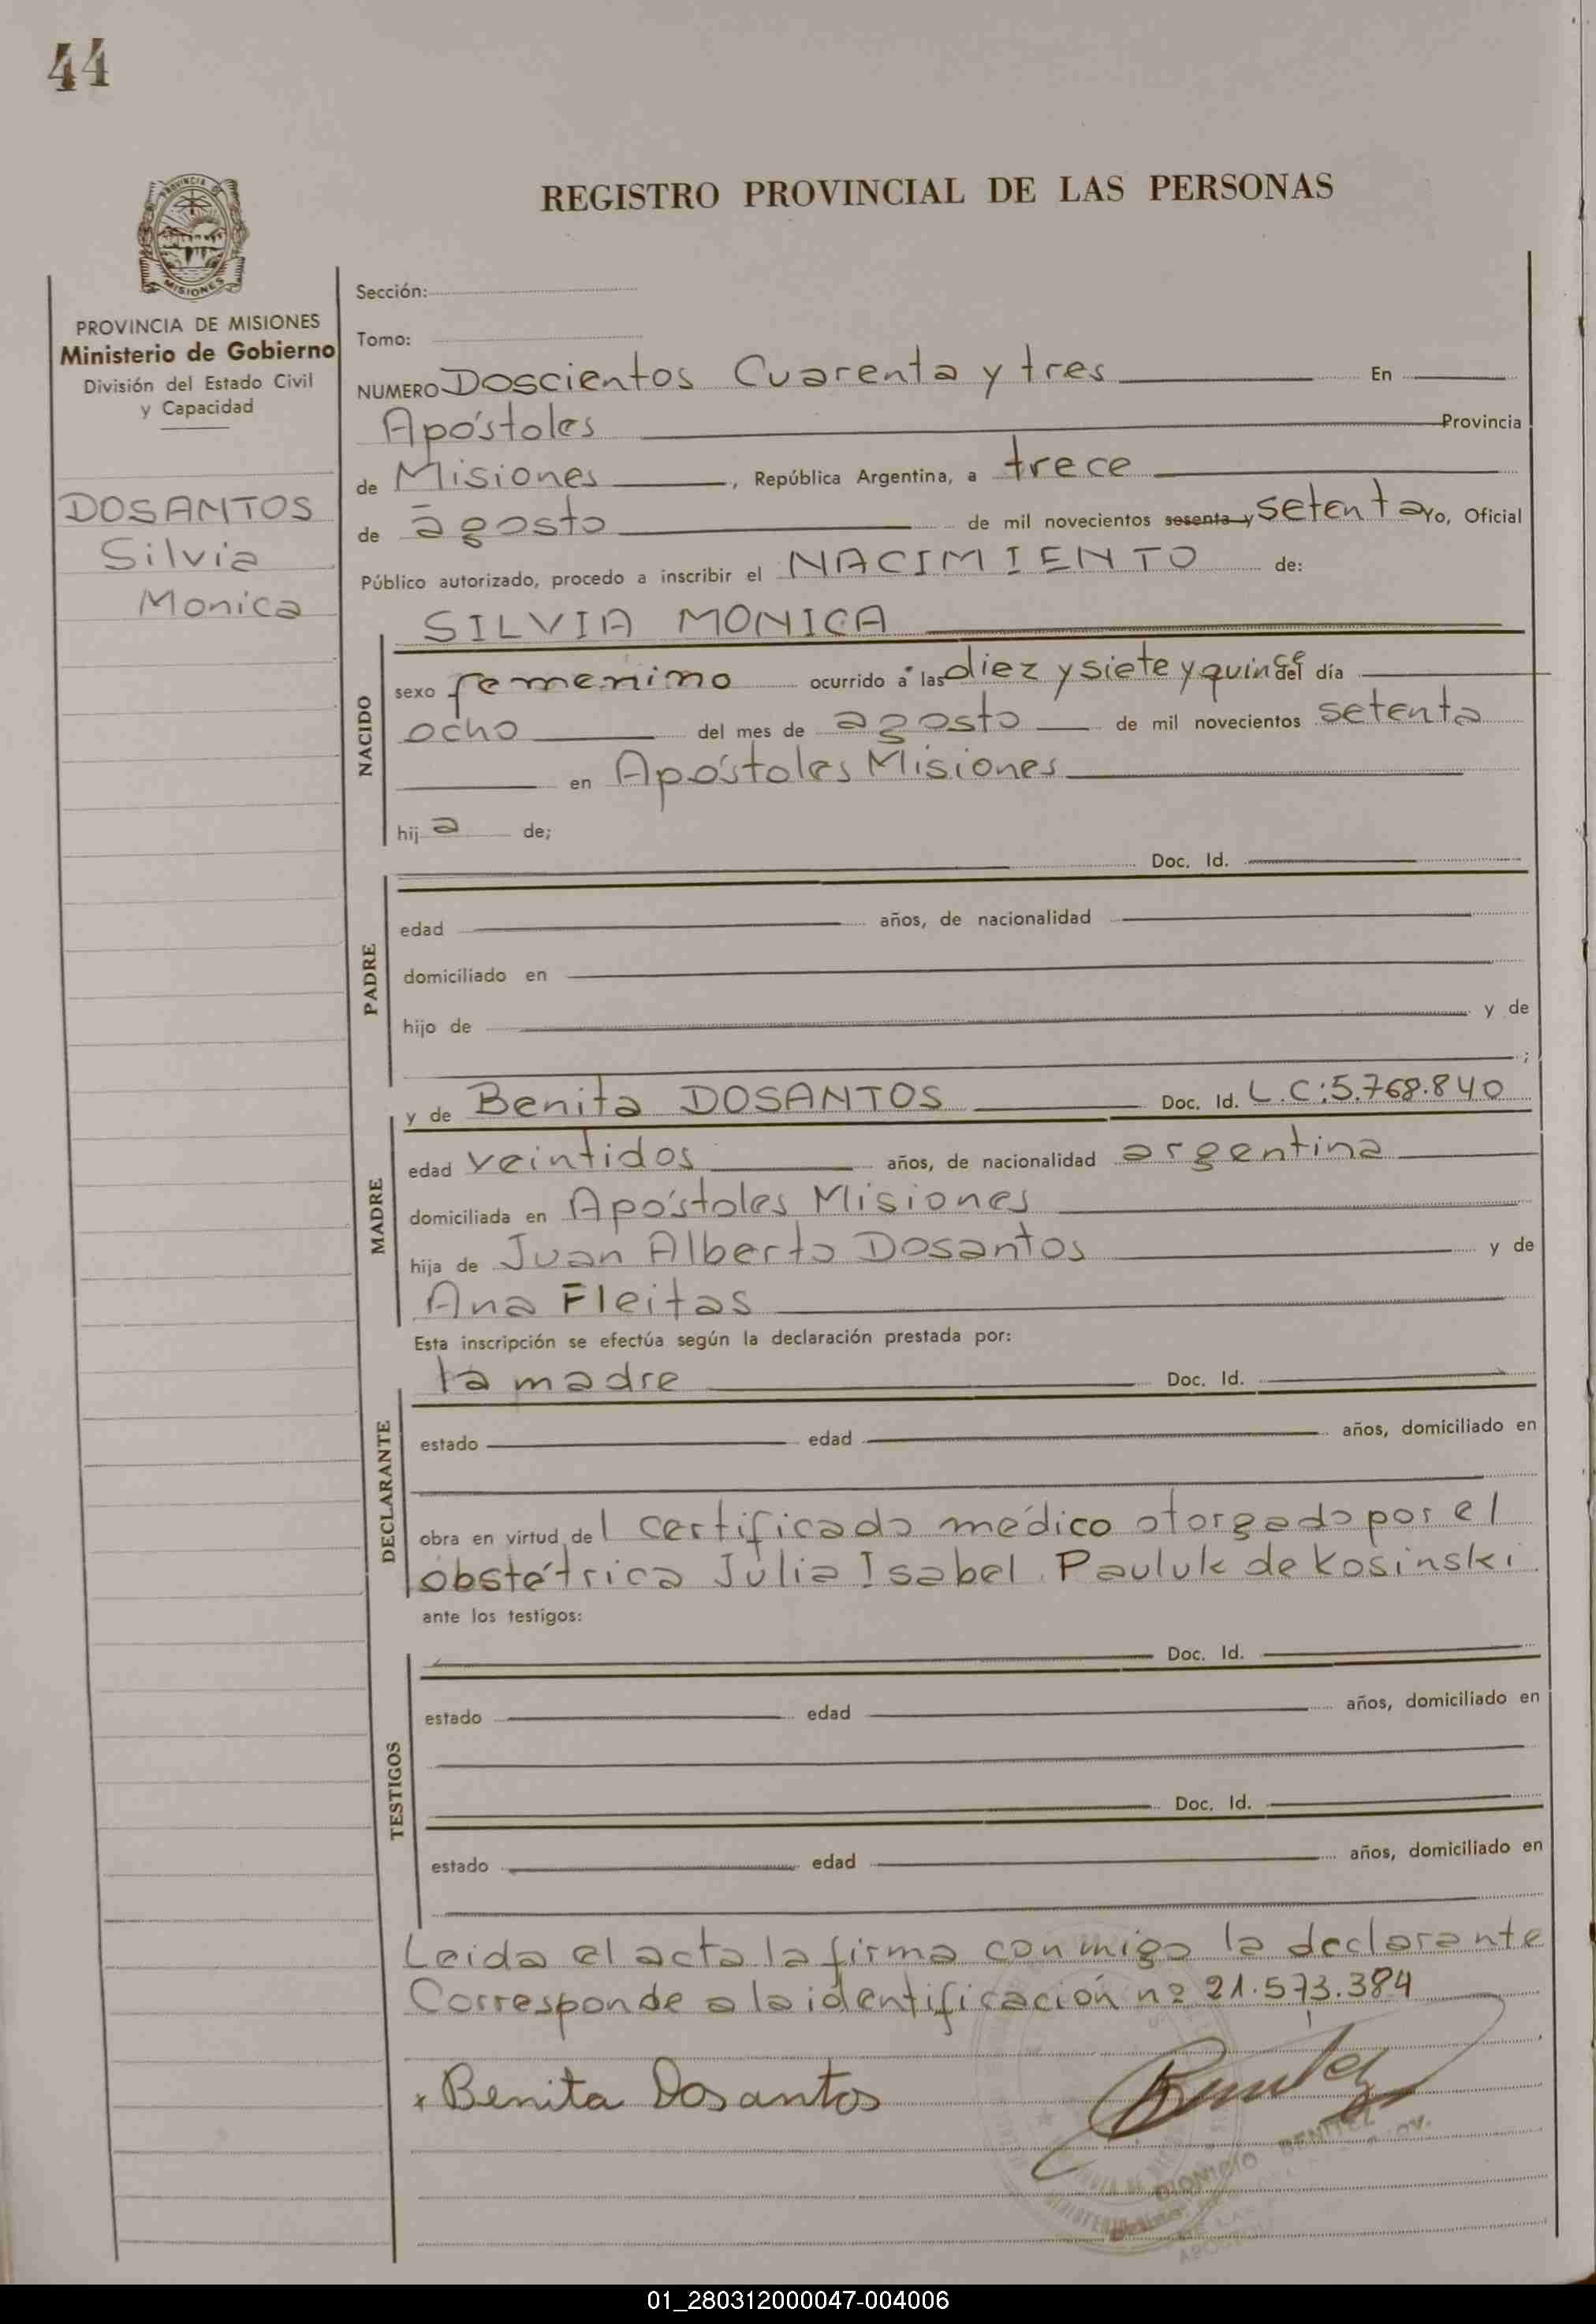 44
REGISTRO PROVINCIAL DE LAS PERSONAS
PROVINCIA DE MISIONES
Ministerio de Gobierno
División del Estado Civil
y Capacidad
DOSANTOS
Silvia
Monica
Sección:
Tomo:
NUMERO Doscientos Cuarenta y tres En
Apóstoles Provincia
de Misiones, República Argentina, a trece
de agosto de mil novecientos sesenta y setenta Yo, Oficial
Público autorizado, procedo a inscribir el NACIMIENTO de:
NACIDO
SILVIA MONICA
sexo femenino ocurrido a las diez y siete y quince del día
ocho del mes de agosto de mil novecientos setenta
en Apóstoles Misiones
hija de;
PADRE
Doc. Id.
edad años, de nacionalidad
domiciliado en
hijo de y de
;
MADRE
y de Benita DOSANTOS Doc. Id. L.C:5.768.840
edad veintidos años, de nacionalidad argentina
domiciliada en Apóstoles Misiones
hija de Juan Alberto Dosantos y de
Ana Fleitas
Esta inscripción se efectúa según la declaración prestada por:
DECLARANTE
la madre Doc. Id.
estado edad años, domiciliado en
obra en virtud del certificado médico otorgado por el
obstétrica Julia Isabel Pauluk de Kosinski
ante los testigos:
TESTIGOS
Doc. Id.
estado edad años, domiciliado en
Doc. Id.
estado edad años, domiciliado en
Leida el acta la firma conmigo la declarante
Corresponde a la identificación nº 21.573.384
x Benita Dosantos
DIONICIO BENITEZ
01_280312000047-004006